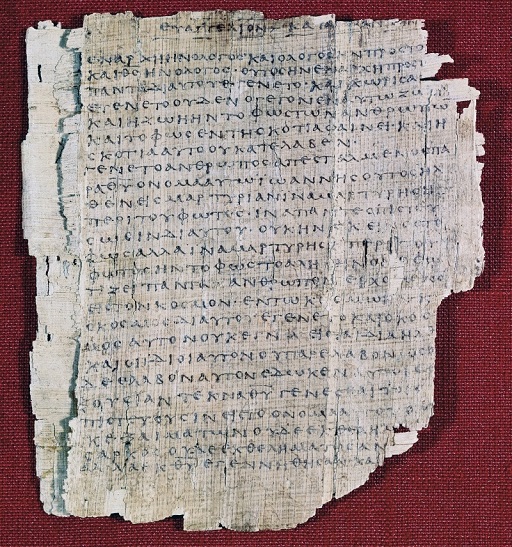 ΕΥΑΓΓΕΛΙΟΝ ΚΑΤΑ
ΕΝ ΑΡΧΗ ΗΝ Ο ΛΟΓΟΣ ΚΑΙ Ο ΛΟΓΟΣ ΗΝ ΠΡΟΣ ΤΟ
ΚΑΙ ΘΣ ΗΝ Ο ΛΟΓΟΣ ΟΥΤΟΣ ΗΝ ΕΝ ΑΡΧΗ ΠΡΟΣ
ΠΑΝΤΑ ΔΙ ΑΥΤΟΥ ΕΓΕΝΕΤΟ ΚΑΙ ΧΩΡΙΣ Α
ΕΓΕΝΕΤΟ ΟΥΔΕΝ Ο ΓΕΓΟΝΕΝ ΕΝ ΑΥΤΩ ΖΩ
ΚΑΙ Η ΖΩΗ ΗΝ ΤΟ ΦΩΣ ΤΩΝ ΑΝΘΡΩΠΩ
ΚΑΙ ΤΟ ΦΩΣ ΕΝ ΤΗ ΣΚΟΤΙΑ ΦΑΙΝΕΙ ΚΑΙ Η
ΣΚΟΤΙΑ ΑΥΤΟ ΟΥ ΚΑΤΕΛΑΒΕΝ
ΕΓΕΝΕΤΟ ΑΝΘΡΩΠΟΣ ΑΠΕΣΤΑΛΜΕΝΟΣ ΠΑ
ΡΑ ΘΥ ΟΝΟΜΑ ΑΥΤΩ ΙΩΑΝΝΗΣ ΟΥΤΟΣ ΗΛ
ΘΕΝ ΕΙΣ ΜΑΡΤΥΡΙΑΝ ΙΝΑ ΜΑΡΤΥΡΗΣΗ
ΠΕΡΙ ΤΟΥ ΦΩΤΟΣ ΙΝΑ ΠΑΝΤΕΣ ΠΙΣΤΕΥ
ΣΩΣΙΝ ΔΙ ΑΥΤΟΥ ΟΥΚ ΗΝ ΕΚΕΙΝΟΣ ΤΟ
ΦΩΣ ΑΛΛΑ ΙΝΑ ΜΑΡΤΥΡΗΣΗ ΠΕΡΙ ΤΟΥ
ΦΩΤΟΣ ΗΝ ΤΟ ΦΩΣ ΤΟ
ΤΙΖΕΙ ΠΑΝΤΑ ΑΝΘΡΩΠΟΝ
ΕΙΣ ΤΟΝ ΚΟΣΜΟΝ ΕΝ ΤΩ ΚΟΣΜΩ ΗΝ
ΚΟΣΜΟΣ ΔΙ ΑΥΤΟΥ ΕΓΕΝΕΤΟ ΚΑΙ Ο ΚΟΣ
ΜΟΣ ΑΥΤΟΝ ΟΥΚ ΕΓΝΩ ΕΙΣ ΤΑ ΙΔΙΑ ΗΛ
ΚΑΙ ΟΙ ΙΔΙΟΙ ΑΥΤΟΝ ΟΥ ΠΑΡΕΛΑΒΟΝ ΟΣΟΙ
ΔΕ ΕΛΑΒΟΝ ΑΥΤΟΝ ΕΔΩΚΕΝ ΑΥΤΟΙΣ
ΟΥΣΙΑΝ ΤΕΚΝΑ ΘΥ ΓΕΝΕΣΘΑΙ ΤΟΙΣ
ΠΙΣΤΕΥΟΥΣΙΝ ΕΙΣ ΤΟ ΟΝΟΜΑ
Κ ΕΞ ΑΙΜΑΤΩΝ ΟΥΔΕ ΕΚ
ΣΑΡΚΟΣ ΟΥΔΕ ΕΚ ΘΕΛΗΜΑΤΟΣ ΑΝ
ΑΛΛΑ ΕΚ ΘΥ ΕΓΕΝΝΗΘΗΣΑΝ ΚΑΙ